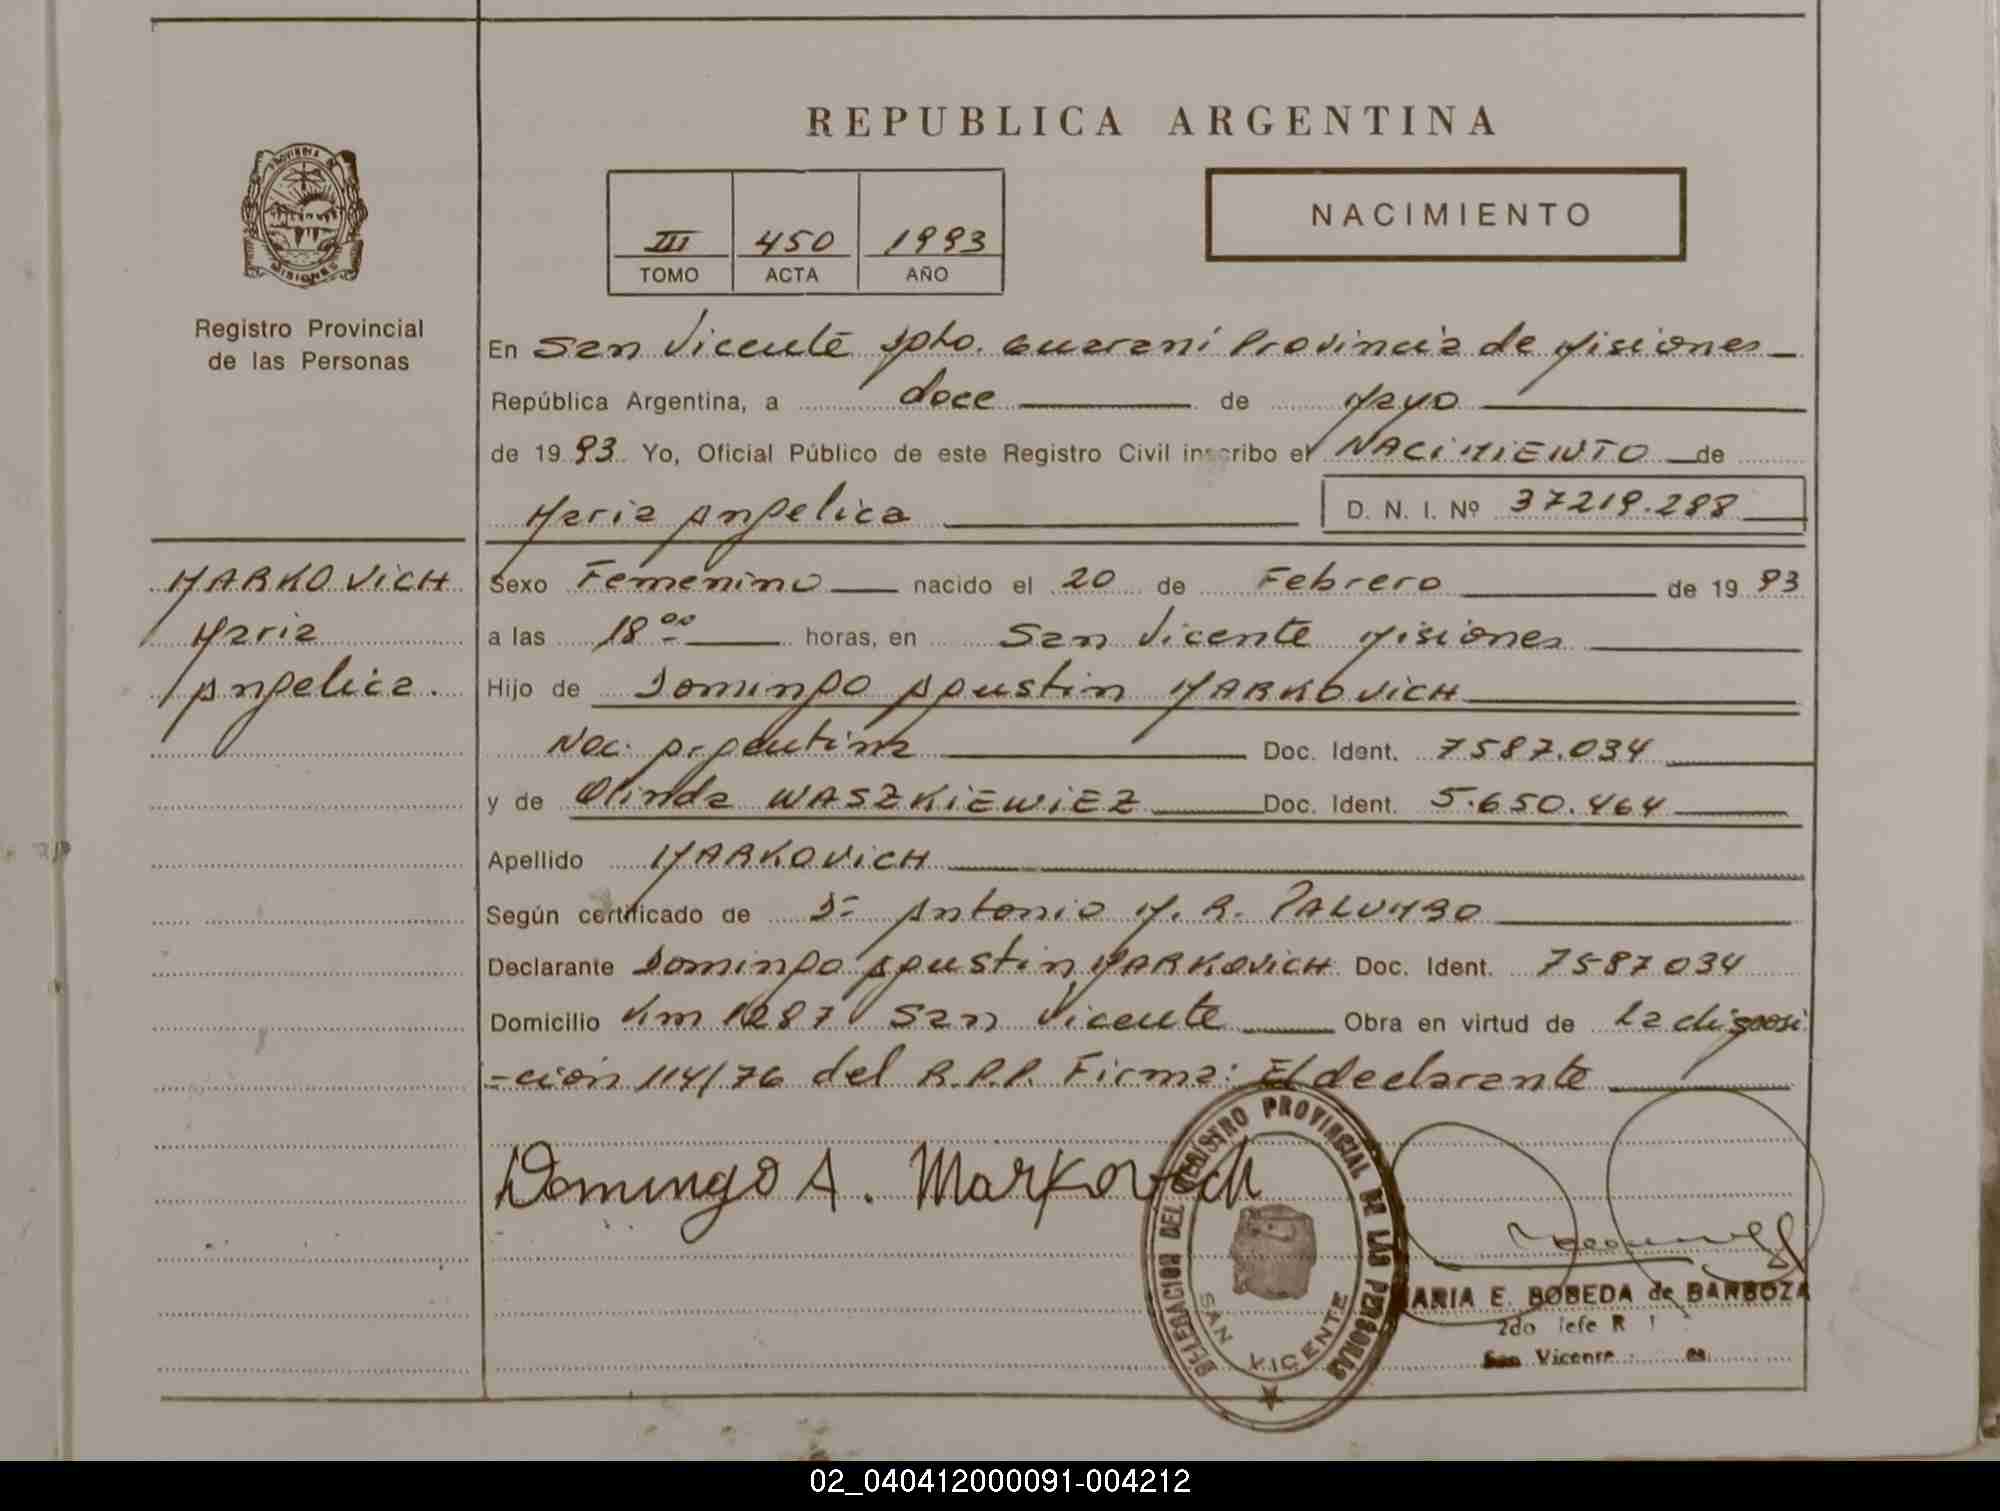 REPUBLICA ARGENTINA
PROVINCIA DE
MISIONES
Registro Provincial
de las Personas
III 450 1993
TOMO ACTA AÑO
NACIMIENTO
En San Vicente Dpto. Guaraní Provincia de Misiones
República Argentina, a doce de Mayo
de 1993 Yo, Oficial Público de este Registro Civil inscribo el NACIMIENTO de
Maria Angelica D. N. I. Nº 37219.288
MARKOVICH
Maria
Angelica.
Sexo Femenino nacido el 20 de Febrero de 1993
a las 18 00 horas, en San Vicente Misiones
Hijo de Domingo Agustin MARKOVICH
Nac. Argentina Doc. Ident. 7587.034
y de Olinda WASZKIEWIEZ Doc. Ident. 5.650.464
Apellido MARKOVICH
Según certificado de Dº Antonio M. R. PALUMBO
Declarante Domingo Agustin MARKOVICH Doc. Ident. 7587034
Domicilio Km 1287 San Vicente Obra en virtud de La disposi
-ción 114/76 del R.P.P. Firma: El declarante
Domingo A. Markovich
DELEGACION DEL REGISTRO PROVINCIAL DE LAS PERSONAS
SAN VICENTE
MARIA E. BOBEDA de BARBOZA
2do Jefe R
San Vicente
02_040412000091-004212